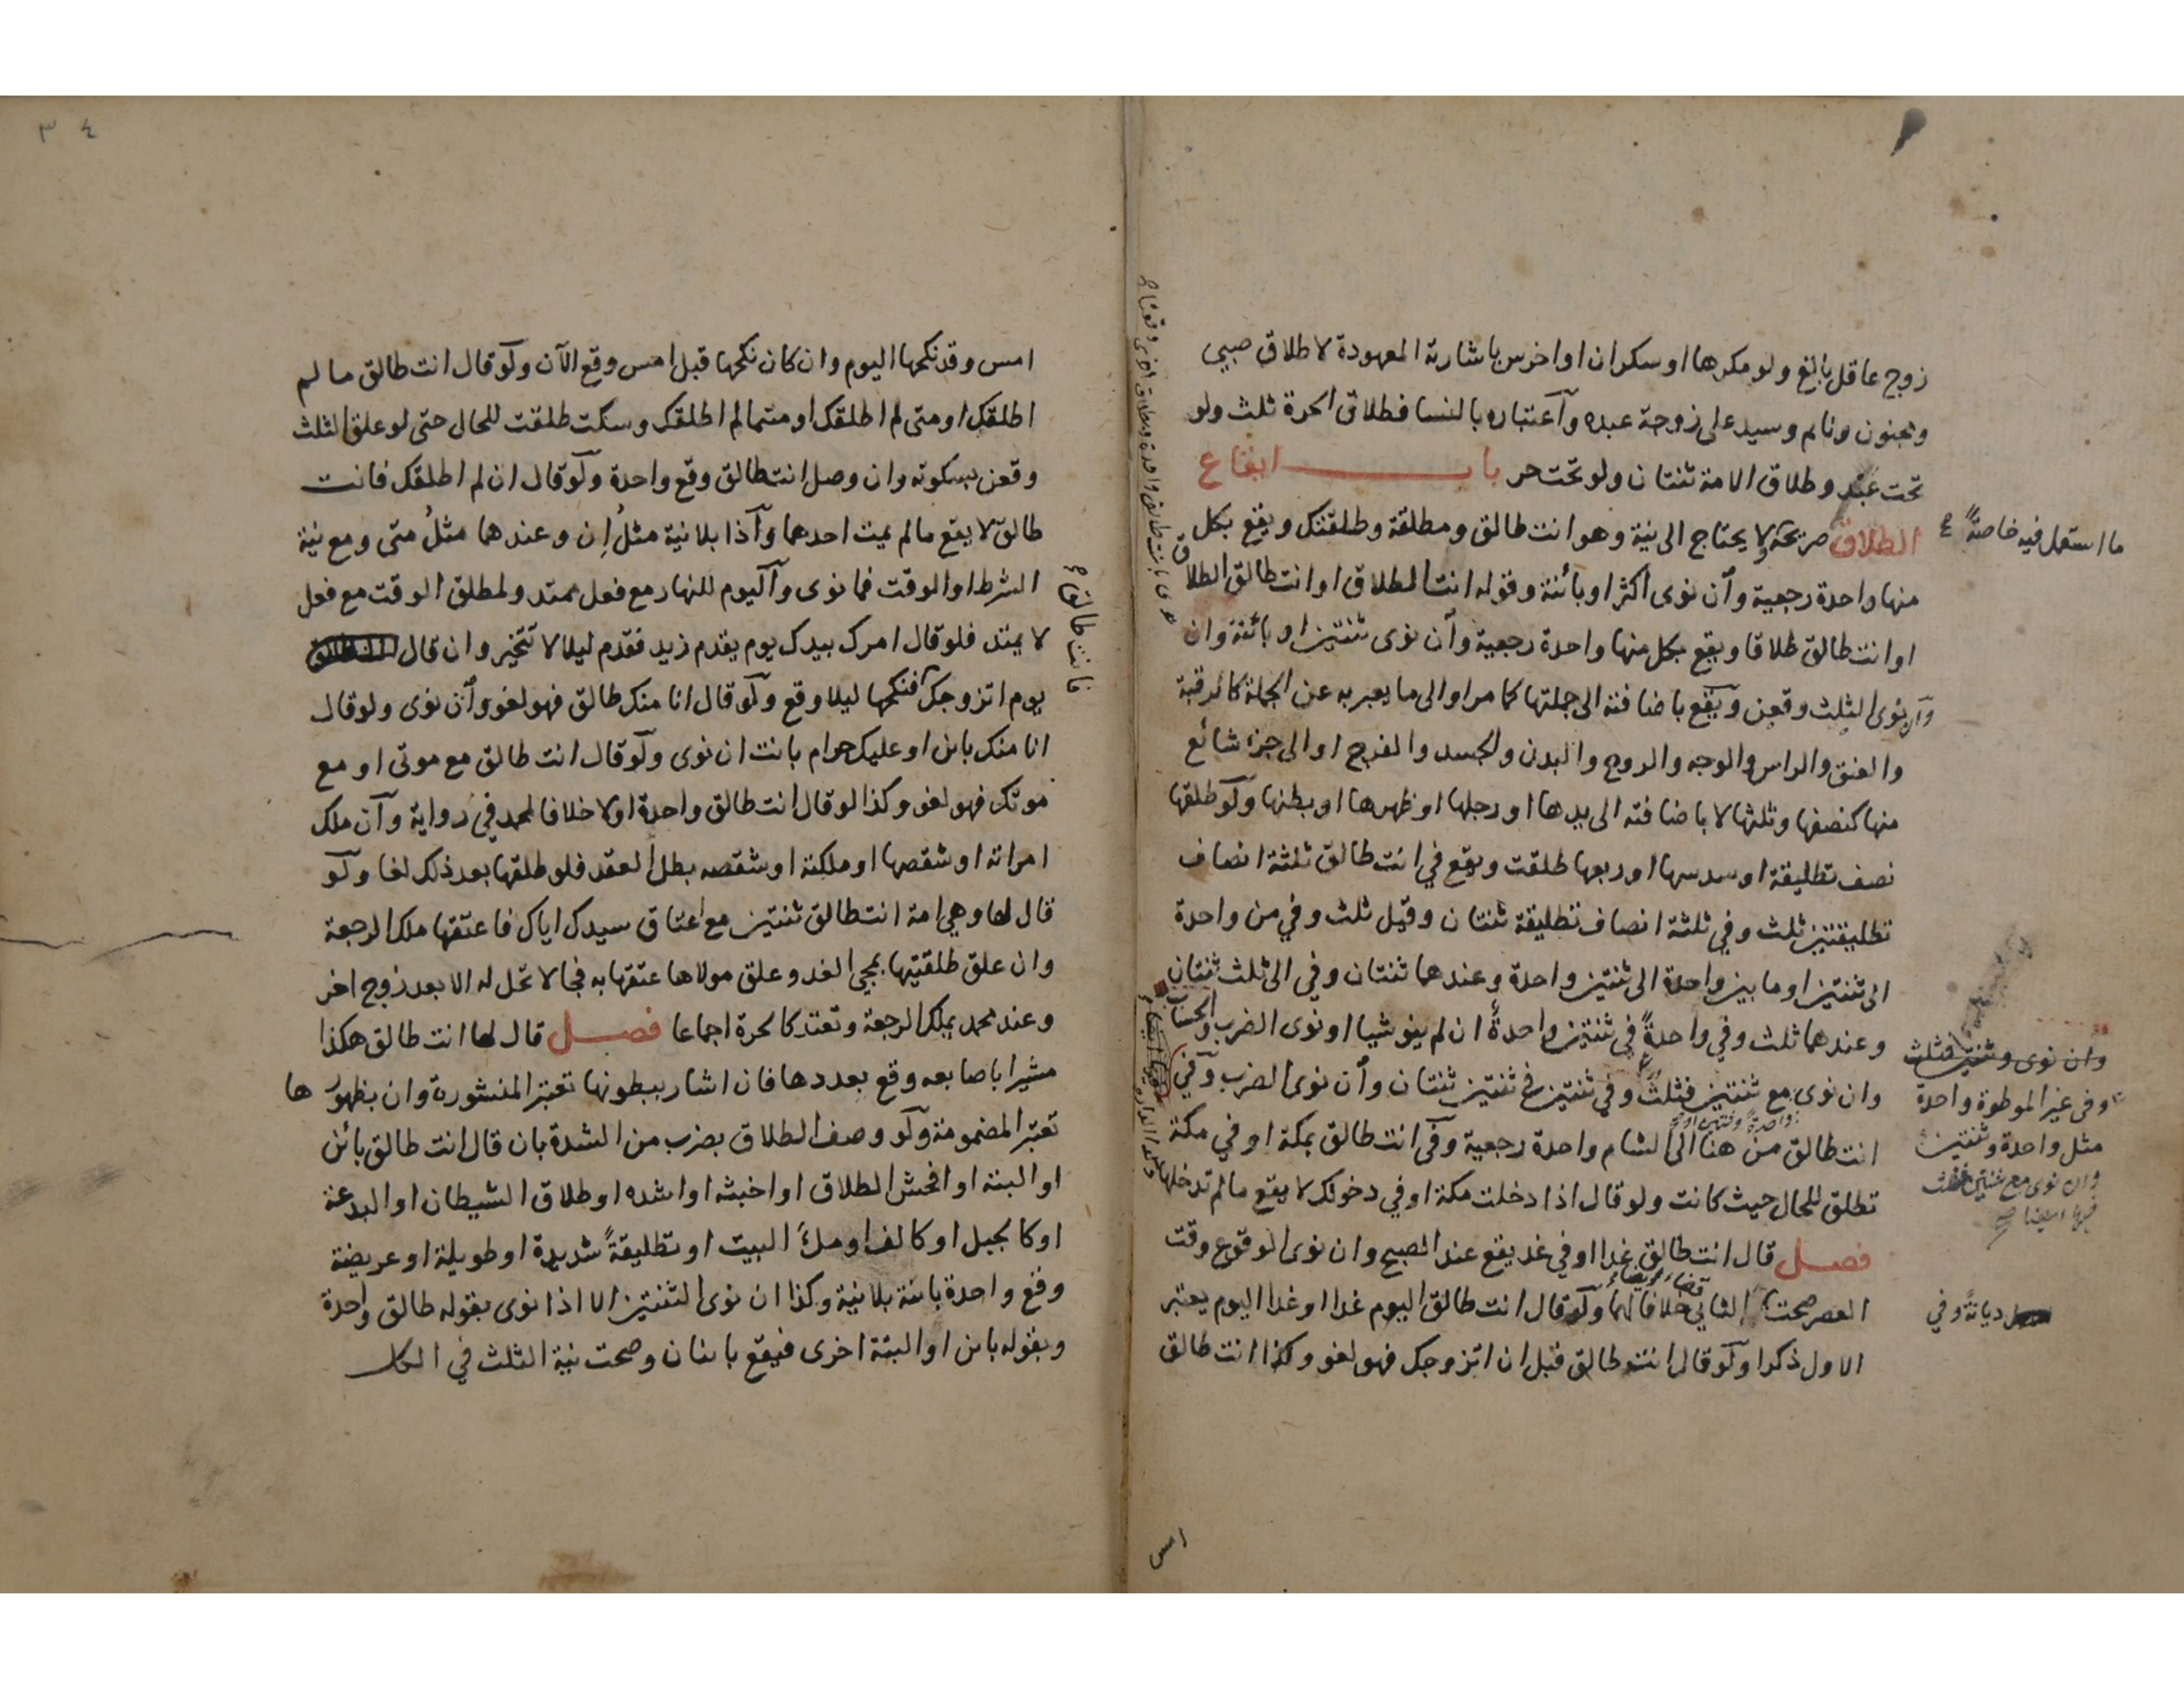 زوج عاقل بالغ ولو مكرها او سكران او اخرس باشارته المعهودة لا طلاق صبي
ومجنون ونايم وسيد على زوجة عبده وآعتباره بالنسا فطلاق الحرة ثلث ولو
تحت عبد وطلاق الامة ثنتان ولو تحت حر باب ايقاع
الطلاق صريحه لا يحتاج الى نية وهو انت طالق ومطلقة وطلقتك ويقع بكل
ما استعمل فيه خاصةً
منها واحدة رجعية وآن نوى اكثر او بائنة وقوله انت الطلاق او انت طالق الطلاق
او انت طالق طلاقا ويقع بكل منها واحدة رجعية وآن نوى ثنتين او بائنة وان
نوى الثلث وقعن ويقع باضافته الى جملتها كما مر او الى ما يعبر به عن الجملة كالرقبة
والعنق والراس والوجه والروح والبدن والجسد والفرج او الى جزء شائع
منها كنصفها وثلثها لا باضافته الى يدها او رجلها او ظهرها او بطنها ولو طلقها
نصف تطليقة او سدسها او ربعها طلقت ويقع في انت طالق ثلثة انصاف
تطليقتين ثلث وفي ثلثة انصاف تطليقة ثنتان وقيل ثلث وفي من واحدة
الى ثنتين او ما بين واحدة الى ثنتين واحدة وعندهما ثنتان وفي الى ثلث ثنتان
وعندهما ثلث وفي واحدةً في ثنتين واحدةً ان لم ينو شيا او نوى الضرب والحساب
وان نوى وثنتين فثلث
وفى غير الموطوة واحدة
مثل واحدة وثنتين
وان نوى مع ثنتين فثلث
فيها ايضا صح
وان نوى مع ثنتين فثلثٌ وفي ثنتين في ثنتين ثنتان وآن نوى الضرب وفي
انت طالق من هنا الى الشام واحدة رجعية وفى انت طالق بمكة او في مكة
تطلق للحال حيث كانت ولو قال اذا دخلت مكة او في دخولك لا يقع ما لم تدخلها
فصل قال انت طالق غدا او في غد يقع عند الصبح وان نوى الوقوع وقت
العصر صحت الثاني خلافا لهما ولو قال انت طالق اليوم غدا او غدا اليوم يعتبر
ديانةً وفي
الاول ذكرا ولو قال انت طالق قبل ان اتزوجك فهو لغو وكذا انت طالق
امس
٣٤
امس وقد نكحها اليوم وان كان نكحها قبل امس وقع الآن ولو قال انت طالق ما لم
اطلقك او متى لم اطلقك او متما لم اطلقك وسكت طلقت للحال حتى لو علق الثلث
وقعن بسكوته وان وصل انت طالق وقع واحدة ولو قال ان لم اطلقك فانت
طالق لا يقع ما لم يمت احدهما وآذا بلا نية مثلُ اِن وعندهما مثلُ متى ومع نية
الشرط او الوقت فما نوى وآليوم للنهار مع فعل ممتد ولمطلق الوقت مع فعل
لا يمتد فلو قال امرك بيدك يوم يقدم زيد فقدم ليلا لا تتخير وان قال
يوم اتزوجك فنكحها ليلا وقع ولو قال انا منك طالق فهو لغو وآن نوى ولو قال
فانت طالق صح
انا منك باين او عليك حرام بانت ان نوى ولو قال انت طالق مع موتى او مع
موتك فهو لغو وكذا لو قال انت طالق واحدة اولا خلافا لمحمد في رواية وآن ملك
امراته او شقصها او ملكته او شقصه بطل العقد فلو طلقها بعد ذلك لغا ولو
قال لها وهي امة انت طالق ثنتين مع اعتاق سيدك اياك فاعتقها ملك الرجعة
وان علق طلقتيها بمجي الغد وعلق مولاها عتقها به فجا لا تحل له الا بعد زوج اخر
وعند محمد يملك الرجعة وتعتد كالحرة اجماعا فصل قال لها انت طالق هكذا
مشيرا باصابعه وقع بعددها فان اشار ببطونها تعتبر المنشورة وان بظهورها
تعتبر المضمومة ولو وصف الطلاق بضرب من الشدة بان قال انت طالق بائن
او البتة او افحش الطلاق او اخبثه او اشده او طلاق الشيطان او البدعة
او كالجبل او كالف او ملءَ البيت او تطليقةً شديدة او طويلة او عريضة
وقع واحدة بائنة بلا نية وكذا ان نوى الثنتين الا اذا نوى بقوله طالق واحدة
وبقوله باين او البتة اخرى فيقع باينان وصحت نية الثلث في الكل